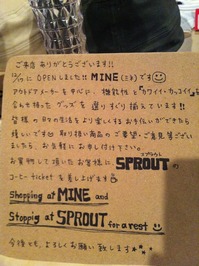 ご来店 ありがとうございます!!
12/17に OPENしました!! MINE (ミネ) です
アウトドアメーカーを中心に、機能性と「カワイイ・カッコイイ」を
合わせ持った グッズを 選りすぐり揃えています!!
皆様の 日々の生活をより楽しくする お手伝いができたら
嬉しいです 取り扱い商品の ご要望・ご意見等ござい
ましたら、お気軽に お申し付け下さい。
お買物して頂いたお客様に SPROUT の
スプラウト
コーヒーticket を差し上げます
Shopping at MINE and
Stopping at SPROUT for a rest
今後とも、よろしくお願い致します